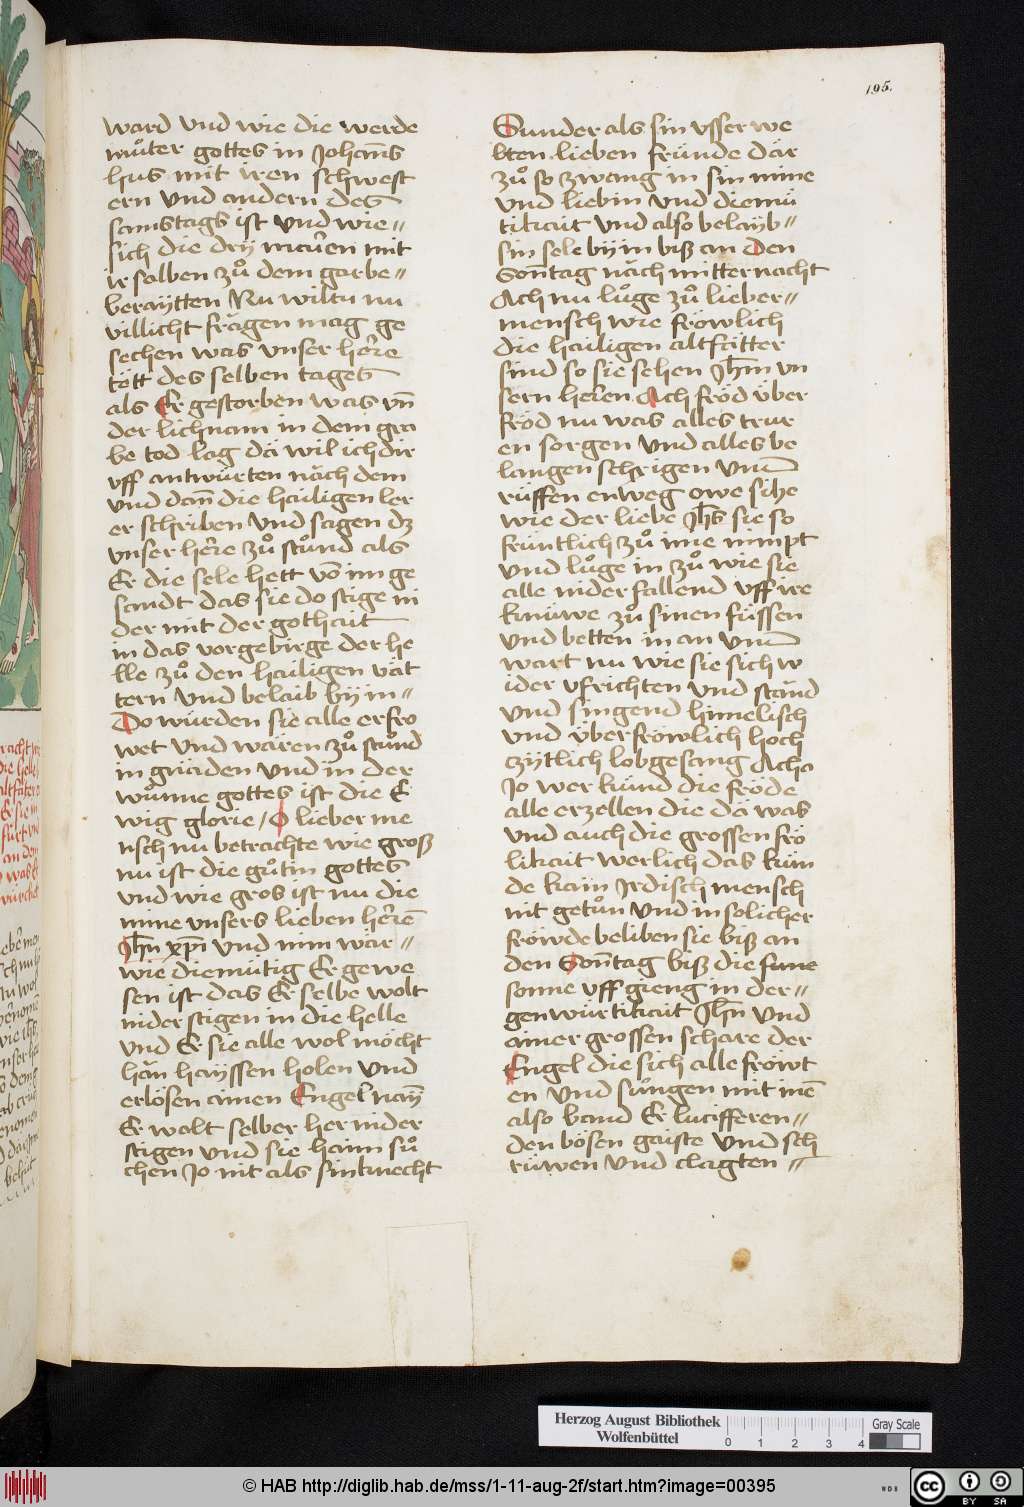 195.
ward vnd wie die werde
můter gottes in Johan̄s
hus mit iren schwest
ern vnd andern des
samstags ist vnd wie〃
sich die dry maŕien mit
ir salben zů dem garbe〃
beraÿtten Nu wiltu nu
villicht frăgen mag ge
sechen was vnser heŕe
tött des selben tages
als Er gestorben was vn̄
der lichnam in dem gra
be tod lag dă wil ich dir
vff antwürten năch dem
vnd dan̄ die hailigen ler
er schriben vnd sagen dz
vnser heŕe zů stůnd als
Er die sele hett vō im ge
sandt das sie do stige ni
der mit der gothait
in das vorgebirge der he
lle zů den hailigen vät
tern vnd belaib bÿ in〃
Do wurden sie alle erfrö
wet vnd wären zů stůnd
in gnäden vnd in der
wůnne gottes ist die E
wig glorie / O lieber me
nsch nu betrachte wie groß
nu ist die gůtin gottes
vnd wie gros ist nu die
mine vnsers lieben heŕē
Jh̄n xp̄i vnd nim war〃
wie diemütig Er gewe
sen ist das Er selbe wolt
nider stigen in die helle
vnd Er sie alle wol möcht
hăn haÿssen holen vnd
erlösen ainen Engel nay̆
Er wolt selber her nider
stigen vnd sie haim sů
chen Jo nit als sin knecht
Sunder als sin vsser we
lten lieben fründe där
zů so zwang in sin mine
vnd liebin vnd diemů
tikait vnd also belaÿb〃
sin sele bÿ in biß an den
Son̄tag năch mitternacht
Ach nu lůge zů lieber〃
mensch wie fröwlich
die hailigen altfätter
sind so sie sehen Jh̄m vn
sern heŕen Ach fröd über
fröd nu was alles trur
en sorgen vnd alles be
langen schrigen vnd
rüffen enweg owe sihe
wie der liebe Jh̄s sie so
früntlich zů ime nimpt
vnd lůge in zů wie sie
alle nider fallend vff ire
knüwe zů sinen füssen
vnd betten in an vnd
wart nu wie sie sich w
ider vfrichten vnd ständ
vnd singend himelisch
vnd über fröwlich hoch
zÿtlich lobgesang Acha
Jo wer künd die fröde
alle erzellen die dă was
vnd auch die grossen frö
likait werlich das kün
de kain Jrdisch mensch
nit getůn vnd in solicher
fröwde beliben sie biß an
den Son̄tag biß die sune
sonne vff gieng in der〃
gen würtikait Jh̄n vnd
ainer grossen schare der
Engel die sich alle fröwt
en vnd sůngen mit inē
also band Er lucifferen〃
den bösen gaiste vnd sch
rüwen vnd clagten〃
Herzog August Bibliothek
Wolfenbüttel
0 1 2 3 4
Gray Scale
© HAB http://diglib.hab.de/mss/1-11-aug-2f/start.htm?image=00395
WDB
cc BY SA